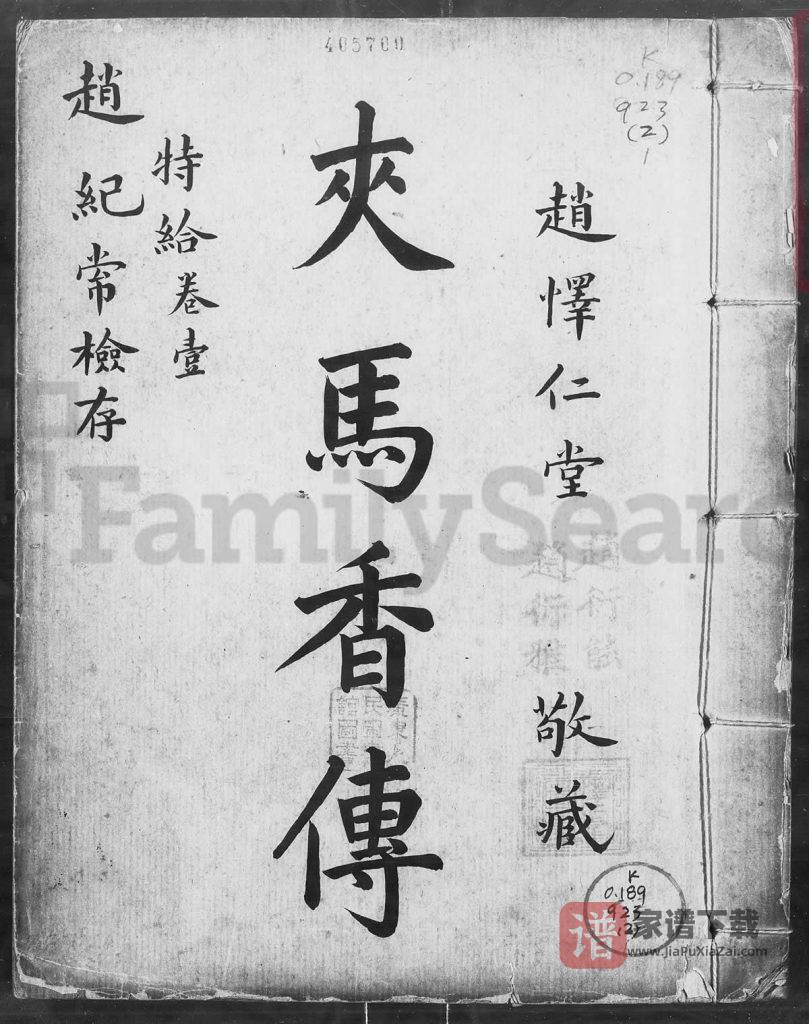 405700
K
0.189
923
(2)
1
趙懌仁堂
敬藏
趙衍
趙衍雅
夾馬香傳
特給卷壹
趙紀常檢存
FamilySearc
K
0.189
923
(2)
谱
家谱下载
www.JiaPuXiaZai.com